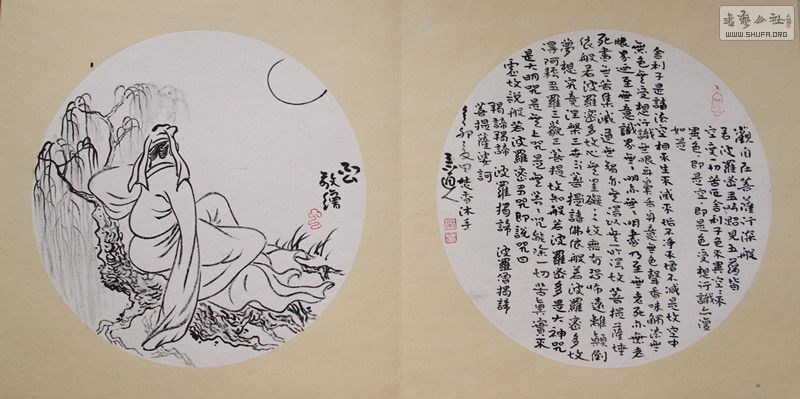 書法公社
WWW.SHUFA.ORG
觀自在菩薩行深般
若波羅密多時照見五蘊皆
空度一切苦厄舍利子色不異空空不
異色色即是空空即是色受想行識亦復
如是
舍利子是諸法空相不生不滅不垢不淨不增不減是故空中
無色無受想行識無眼耳鼻舌身意無色聲香味觸法無
眼界乃至無意識界無無明亦無無明盡乃至無老死亦無老
死盡無苦集滅道無智亦無得以無所得故菩提薩埵
依般若波羅密多故心無罣礙〻故無有恐怖遠離顛倒
夢想究竟涅槃三世諸佛依般若波羅密多故
得阿耨多羅三藐三菩提故知般若波羅密多是大神咒
是大明咒是無上咒是無等〻咒能除一切苦真實不
虛故說般若波羅密多咒即說咒曰
揭諦揭諦 波羅揭諦 波羅僧揭諦
菩提薩婆訶
辛卯 沐手